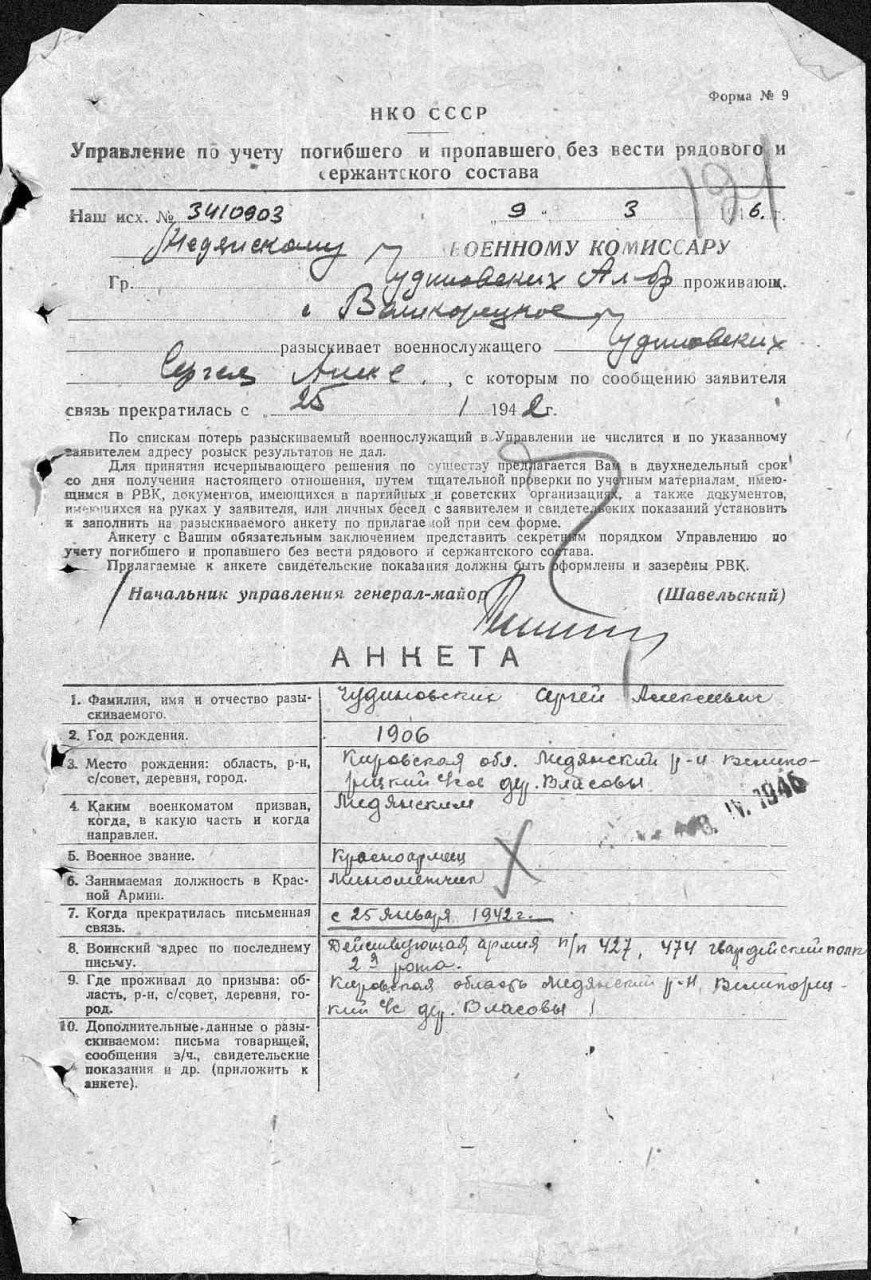 Форма № 9
НКО СССР
Управление по учету погибшего и пропавшего без вести рядового и
сержантского состава
191
Наш исх. № 3410903 „9" 3 1946. г.
Медянскому ВОЕННОМУ КОМИССАРУ
Гр. Чудиновских Ал-др проживающ.
с Великорецкое
разыскивает военнослужащего Чудиновских
Сергея Алекс., с которым по сообщению заявителя
связь прекратилась с 25 1 1942 г.
По спискам потерь разыскиваемый военнослужащий в Управлении не числится и по указанному
заявителем адресу розыск результатов не дал.
Для принятия исчерпывающего решения по существу предлагается Вам в двухнедельный срок
со дня получения настоящего отношения, путем тщательной проверки по учетным материалам, имею-
щимся в РВК, документов, имеющихся в партийных и советских организациях, а также документов,
имеющихся на руках у заявителя, или личных бесед с заявителем и свидетельских показаний установить
и заполнить на разыскиваемого анкету по прилагаемой при сем форме.
Анкету с Вашим обязательным заключением представить секретным порядком Управлению по
учету погибшего и пропавшего без вести рядового и сержантского состава.
Прилагаемые к анкете свидетельские показания должны быть оформлены и заверены РВК.
Начальник управления генерал-майор (Шавельский)
АНКЕТА
1. Фамилия, имя и отчество разы-
скиваемого.
Чудиновских Сергей Алексеевич
2. Год рождения.
1906
3. Место рождения: область, р-н,
с/совет, деревня, город.
Кировская обл. Медянский р-н Велико-
рецкий с/с дер. Власовы
4. Каким военкоматом призван,
когда, в какую часть и когда
направлен.
Медянским
IV. 1946
5. Военное звание.
Красноармеец
6. Занимаемая должность в Крас-
ной Армии.
Минометчик
7. Когда прекратилась письменная
связь.
с 25 января 1942 г.
8. Воинский адрес по последнему
письму.
Действующая армия п/п 427, 474 гвардейский полк
2я рота.
9. Где проживал до призыва: об-
ласть, р-н, с/совет, деревня, го-
род.
Кировская область Медянский р-н, Великорец-
кий с/с дер. Власовы
10. Дополнительные данные о разы-
скиваемом: письма товарищей,
сообщения з/ч., свидетельские
показания и др. (приложить к
анкете).